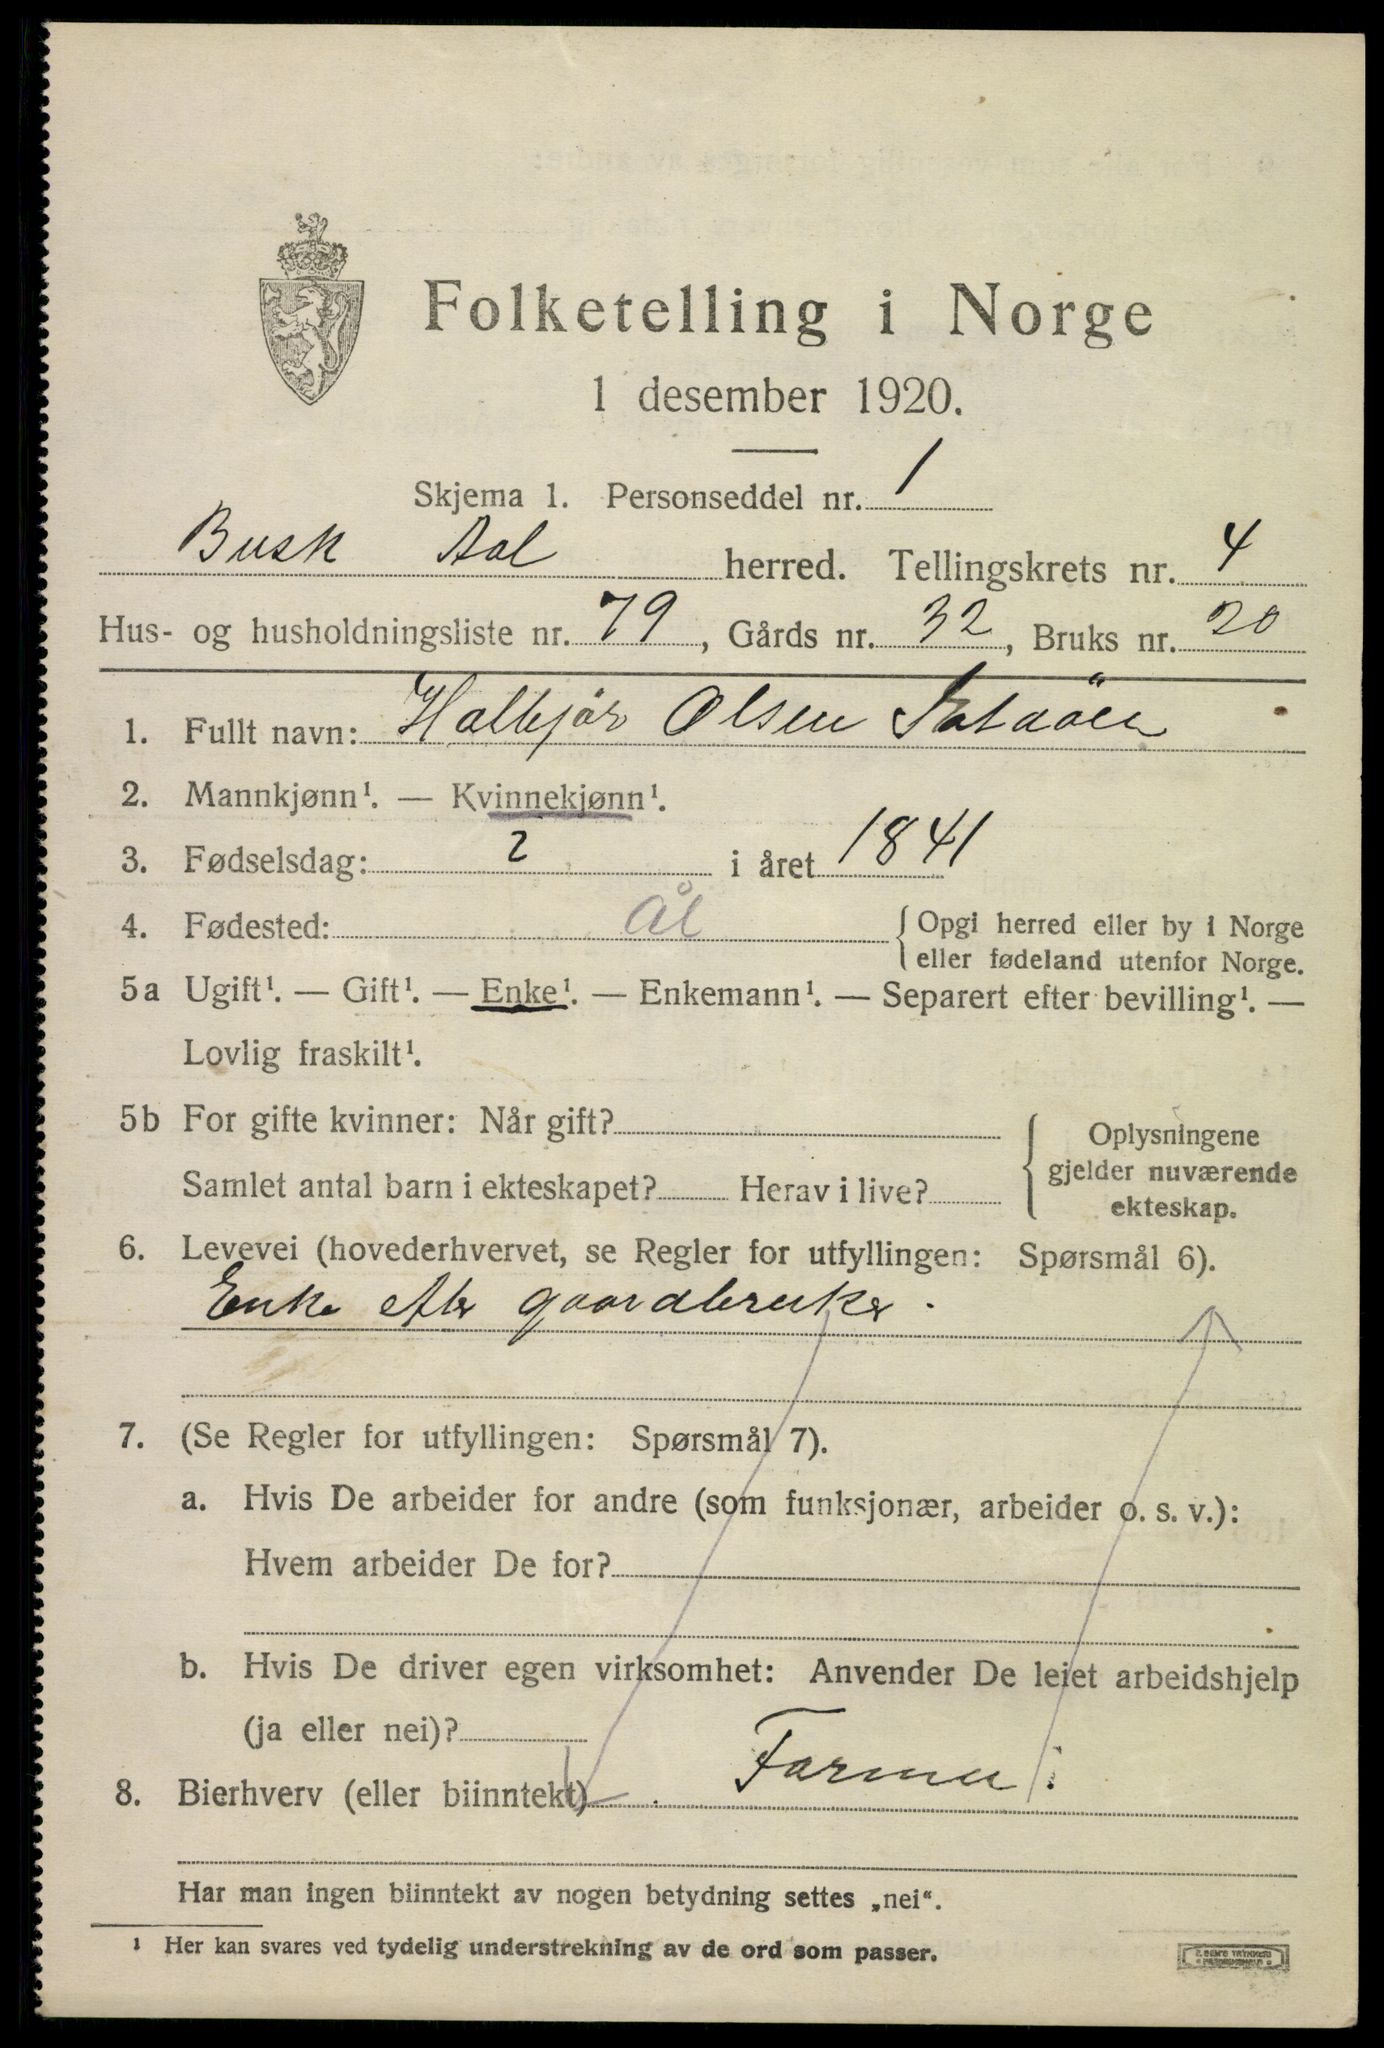 Folketelling i Norge
1 desember 1920.
Skjema 1. Personseddel nr. 1
Busk Aal herred. Tellingskrets nr. 4
Hus- og husholdningsliste nr. 79, Gårds nr. 32, Bruks nr. 20
1. Fullt navn: Olsen
2. Mannkjønn¹. — Kvinnekjønn¹.
3. Fødselsdag: 2 i året 1841
4. Fødested: Ål { Opgi herred eller by i Norge
eller fødeland utenfor Norge.
5a Ugift¹. — Gift¹. — Enke¹. — Enkemann¹. — Separert efter bevilling¹. —
Lovlig fraskilt¹.
5b For gifte kvinner: Når gift?
Samlet antal barn i ekteskapet? Herav i live?
{ Oplysningene
gjelder nuværende
ekteskap.
6. Levevei (hovederhvervet, se Regler for utfyllingen: Spørsmål 6).
Enke efter gaardbruker.
7. (Se Regler for utfyllingen: Spørsmål 7).
a. Hvis De arbeider for andre (som funksjonær, arbeider o. s. v.):
Hvem arbeider De for?
b. Hvis De driver egen virksomhet: Anvender De leiet arbeidshjelp
(ja eller nei)?
8. Bierhverv (eller biinntekt)
Har man ingen biinntekt av nogen betydning settes „nei“.
¹ Her kan svares ved tydelig understrekning av de ord som passer.